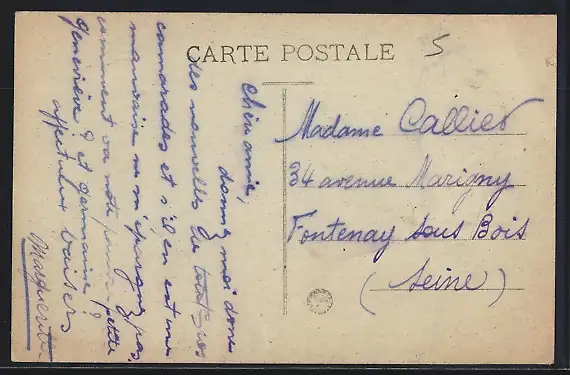 CARTE POSTALE
5
Chère amie,
donnez moi donc
des nouvelles de tous vos
camarades et s'il en est une
mauvaise ne m'épargnez pas,
comment va notre pauvre petite
Geneviève ? et Germaine ?
affectueux baisers
Marguerite
Madame Callier
34 avenue Marigny
Fontenay sous Bois
(Seine)